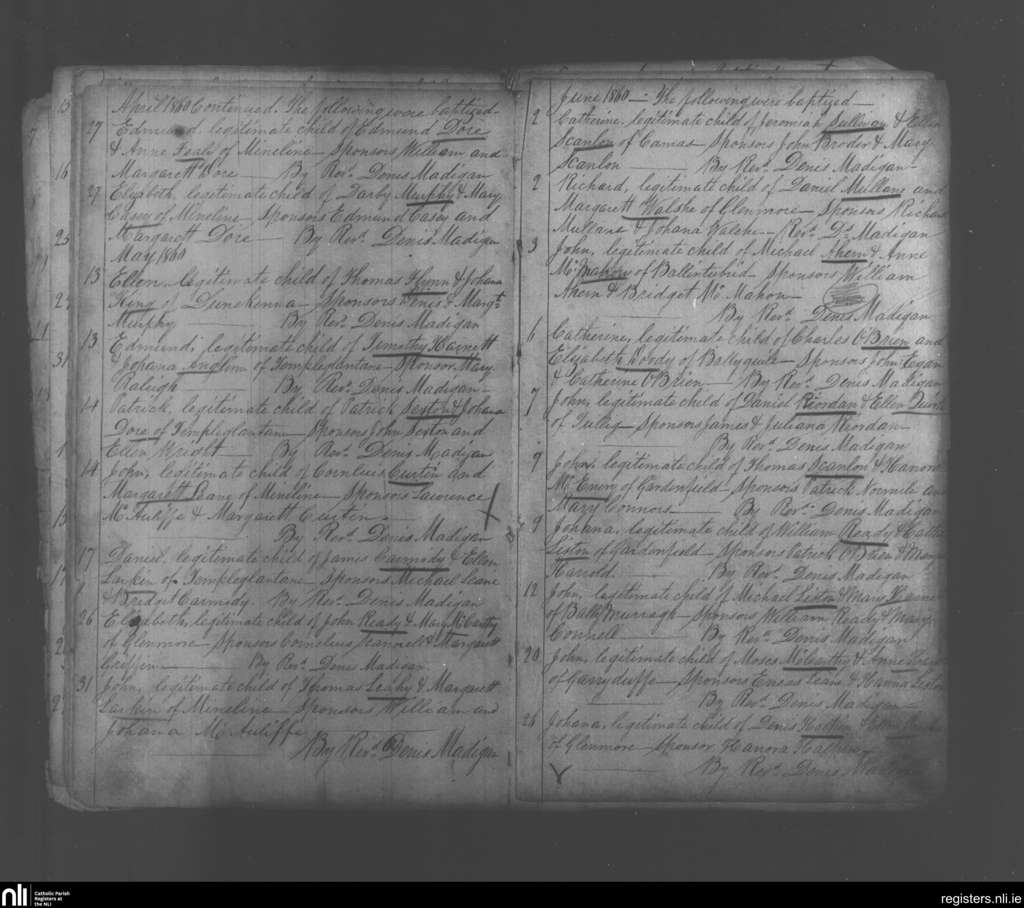 April 1860 Continued. The following were baptized
27 Edmund, legitimate child of Edmund Dore
& Anne Feale of Mineline - Sponsors William and
Margarett Dore — By Revd. Denis Madigan
27 Elizabeth, legitimate child of Darby Murphy & Mary
Casey of Mineline - Sponsors Edmund Casey and
Margarett Dore — By Revd. Denis Madigan
May 1860
13 Ellen - legitimate child of Thomas Flynn & Johana
King of Dunekenna - Sponsors Denis & Margt.
Murphy — By Revd. Denis Madigan
13 Edmund, legitimate child of Timothy Harnett
& Johana Anglim of Templeglantane - Sponsor, Mary
Raleigh — By Revd. Denis Madigan -
14 Patrick, legitimate child of Patrick Sexton & Johana
Dore of Templeglantane - Sponsors John Sexton and
Ellen Wright — By Revd. Denis Madigan
14 John, legitimate child of Cornluis Curtin and
Margarett Bane of Mineline - Sponsors Lawrence
Mc Auliffe & Margarett Curtin -
By Revd. Denis Madigan
17 Daniel, legitimate child of James Carmody & Ellen
Larkin of Templeglantane - Sponsors Michael Leane
& Bridget Carmody. By Revd. Denis Madigan
26 Elizabeth, legitimate child of John Ready & Mary McCarthy
of Glenmore - Sponsors Cornelius & Margarett
By Revd. Denis Madigan
31 John, legitimate child of Thomas Leahy & Margarett
Larkin of Mineline - Sponsors William and
Johana Mc Auliffe
By Revd. Denis Madigan
June 1860 — The following were baptized —
2 Catherine, legitimate child of Jeremiah Sullivan & Ellen
Scanlon of Camas Sponsors John Broder & Mary
Scanlon — By Revd. Denis Madigan -
2 Richard, legitimate child of Daniel Mullane and
Margarett Walshe of Glenmore - Sponsors Richard
Mullane & Johana Walshe - Revd. Ds. Madigan
3 John, legitimate child of Michael Ahern & Anne
Mc Mahon of Ballintubrid - Sponsors William
Ahern & Bridget Mc Mahon -
By Revd. Denis Madigan
6 Catherine, legitimate child of Charles O'Brien and
Elizabeth Woody of - Sponsors John Egan
& Catherine O'Brien. — By Revd. Denis Madigan
7 John, legitimate child of Daniel Riordan & Ellen
of Tullig - Sponsors James & Juliana Riordan -
By Revd. Denis Madigan
9 John, legitimate child of Thomas Scanlon & Hanora
Mc Enery of Gardenfield - Sponsors Patrick Normile and
Mary Connors — By Revd. Denis Madigan
9 Johana, legitimate child of William Ready & Cathe
Liston of Gardenfield - Sponsors Patrick O'Brien & Mary
Harold. — By Revd. Denis Madigan
12 John, legitimate child of Michael Liston & Mary
of BallyMurragh - Sponsors William Ready & Mary
Connell — By Revd. Denis Madigan
20 John, legitimate child of Moses McCarthy & Anne
of Garryduffe - Sponsors Eneas Leane & Hanna Liston
By Revd. Denis Madigan -
26 Johana, legitimate child of Denis
of Glenmore - Sponsor, Hanora
By Revd. Denis Madigan
nli
Catholic Parish
Registers at
the NLI
registers.nli.ie